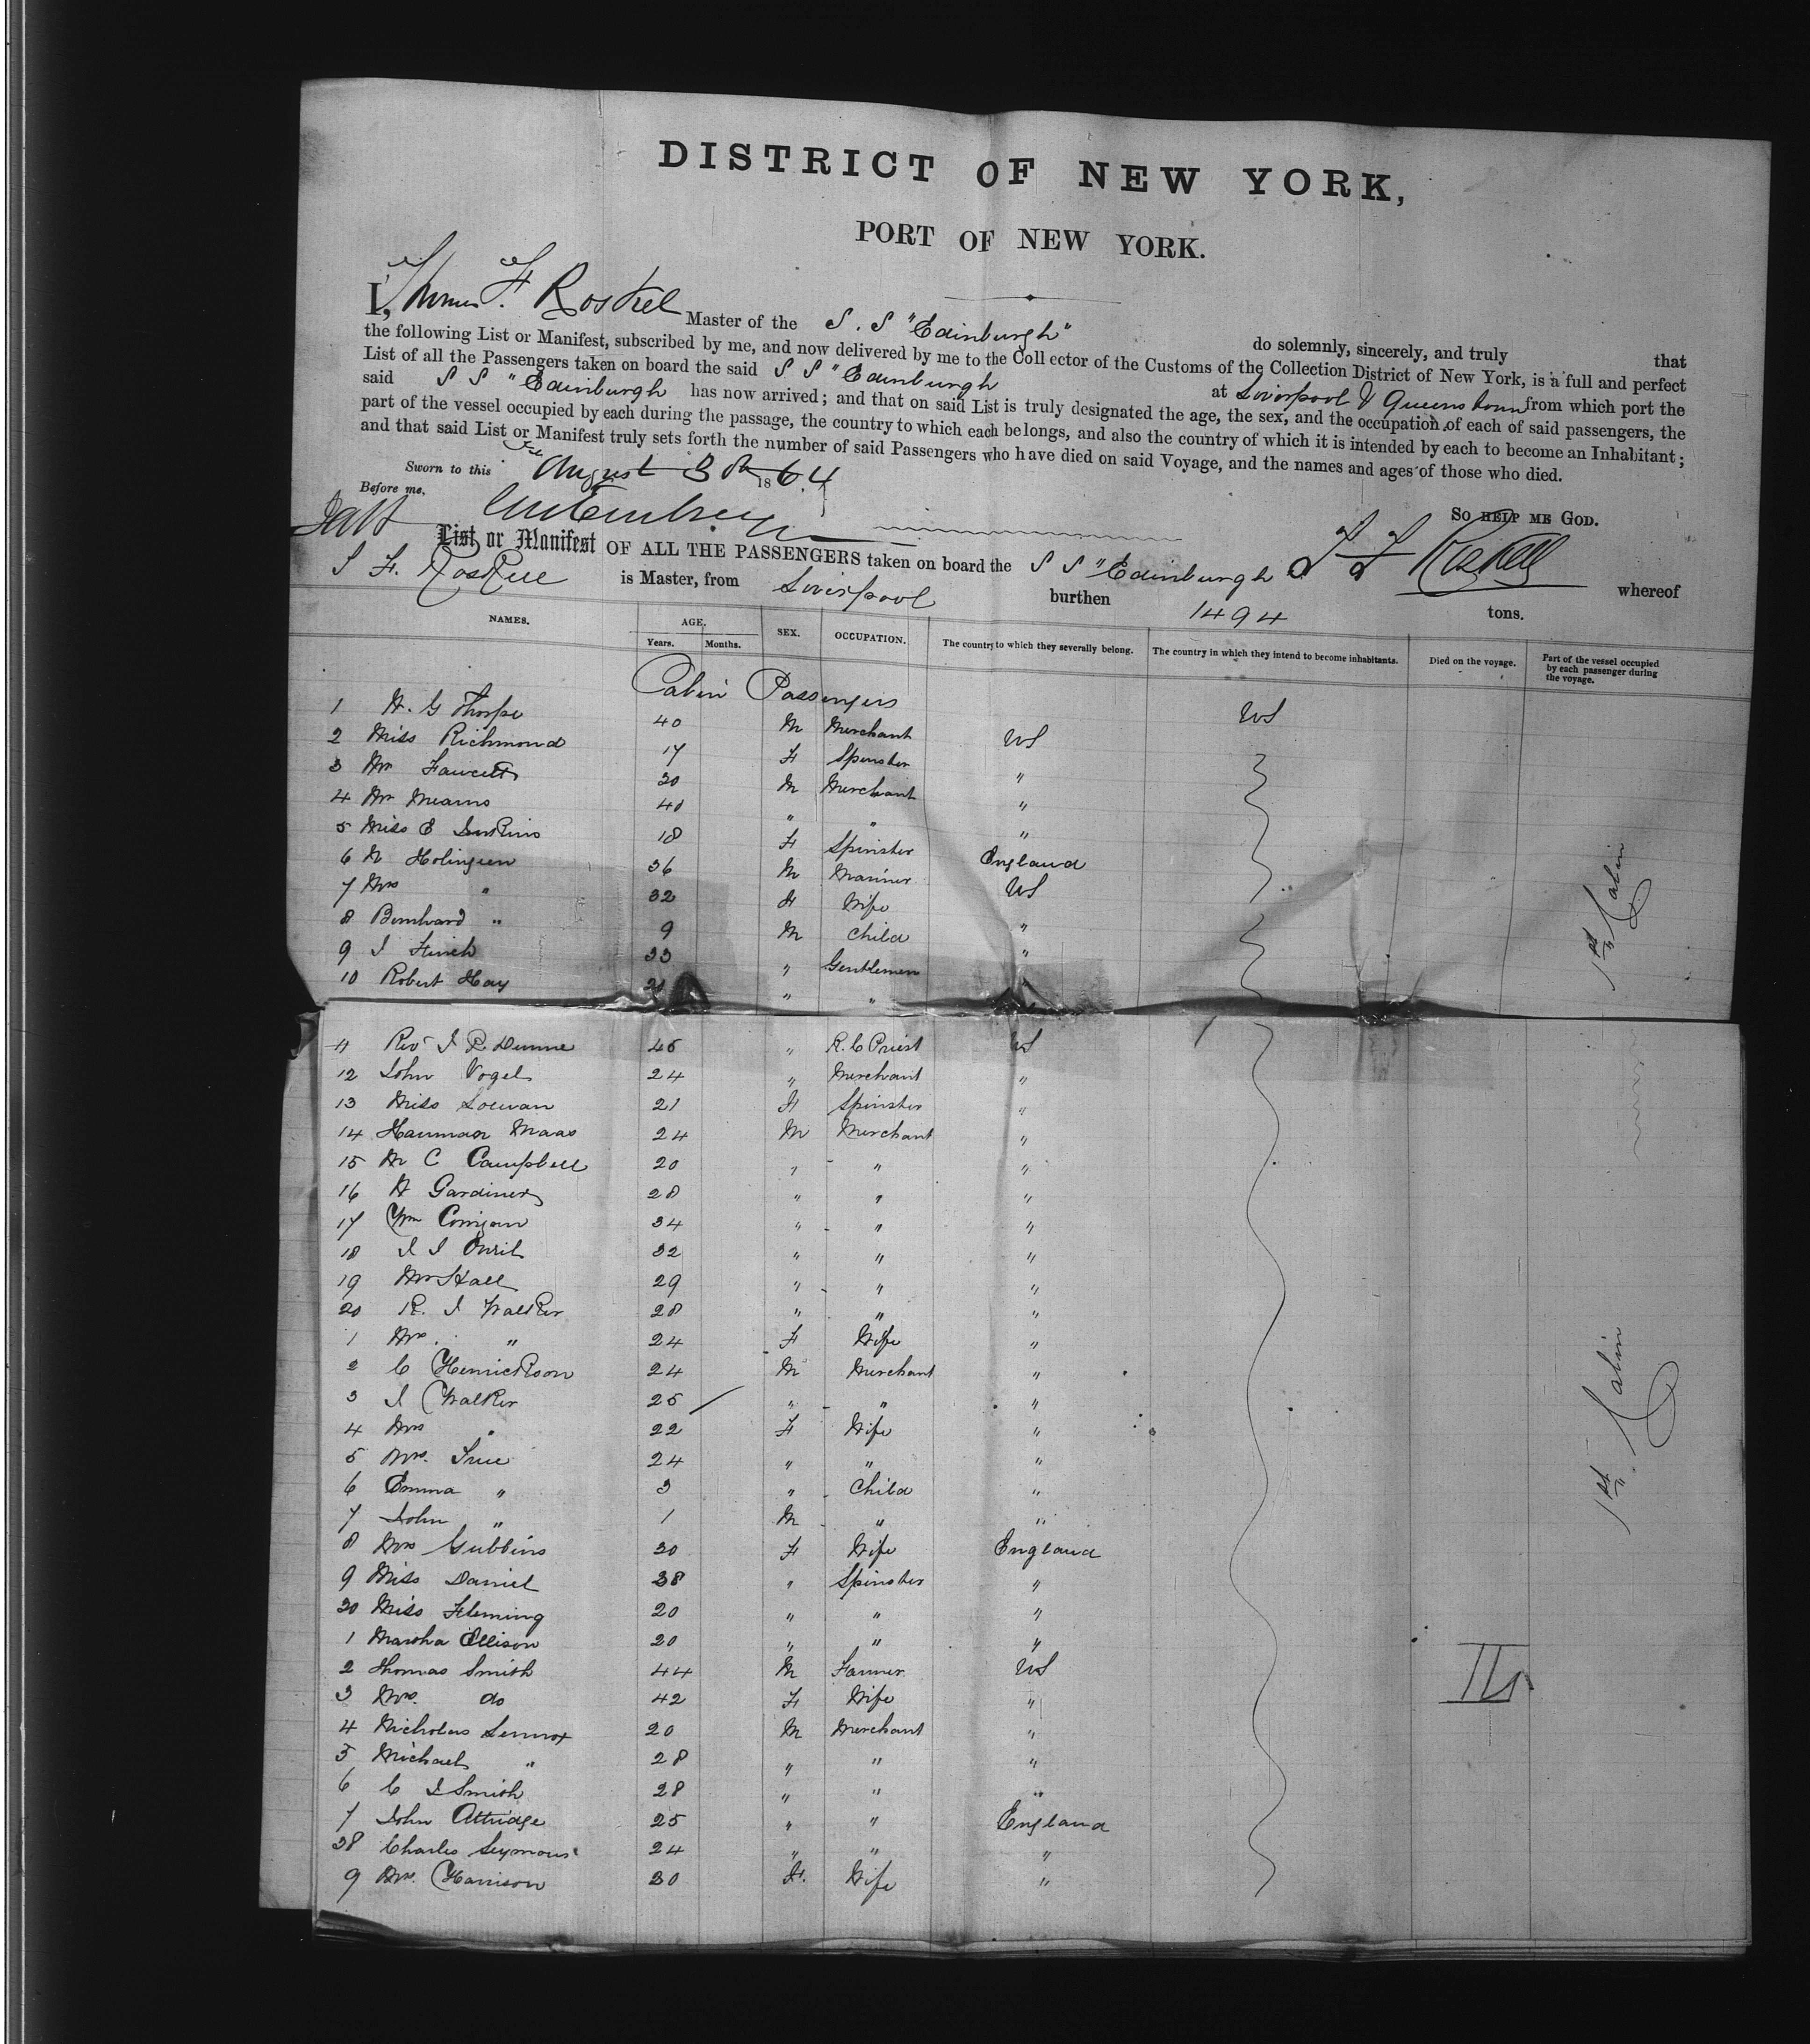 DISTRICT OF NEW YORK,
PORT OF NEW YORK.
I, Thomas F. Roskel Master of the S. S "Edinburgh" do solemnly, sincerely, and truly that
the following List or Manifest, subscribed by me, and now delivered by me to the Collector of the Customs of the Collection District of New York, is a full and perfect
List of all the Passengers taken on board the said S S "Edinburgh at Liverpool & Queenstown from which port the
said S S "Edinburgh has now arrived; and that on said List is truly designated the age, the sex, and the occupation of each of said passengers, the
part of the vessel occupied by each during the passage, the country to which each belongs, and also the country of which it is intended by each to become an Inhabitant;
and that said List or Manifest truly sets forth the number of said Passengers who have died on said Voyage, and the names and ages of those who died.
Sworn to this August 3 1864
So help me God.
Before me,
List or Manifest OF ALL THE PASSENGERS taken on board the S S "Edinburgh whereof
is Master, from Liverpool burthen 1494 tons.
NAMES. AGE. Years. Months. SEX. OCCUPATION. The country to which they severally belong. The country in which they intend to become inhabitants. Died on the voyage. Part of the vessel occupied by each passenger during the voyage.
Cabin Passengers
1 H. G Thorpe 40 M Merchant US US
2 Miss Richmond 17 F Spinster "
3 Mr Fawcett 30 M Merchant "
4 Mr Mearns 40 " " "
5 Miss E Jenkins 18 F Spinster England
6 36 M Mariner US
7 Mrs " 32 F Wife "
8 Bernhard " 9 M Child "
9 33 " Gentlemen
10 Robert Hay " "
1st Cabin
11 Rev J R Dunne 45 " R.C Priest US
12 John Vogel 24 " Merchant "
13 Miss 21 F Spinster "
14 Maas 24 M Merchant "
15 M C Campbell 20 " " "
16 H Gardiner 28 " " "
17 Wm Corrigan 34 " " "
18 32 " " "
19 Mr Hall 29 " " "
20 R. J Walker 28 " " "
1 Mrs. " 24 F Wife "
2 C Henrickson 24 M Merchant "
3 J Walker 25 " " "
4 Mrs " 22 F Wife "
5 Mrs. True 24 " " "
6 Emma " 3 " Child "
7 John " 1 M " "
1st Cabin
8 Mrs Gubbins 30 F Wife England
9 Miss Daniel 38 " Spinster "
30 Miss Fleming 20 " " "
1 Martha Ellison 20 " " "
2 Thomas Smith 44 M Farmer US
3 Mrs. do 42 F Wife "
4 Nicholas Lennox 20 M Merchant "
5 Michael " 28 " " "
6 C J Smith 28 " " "
7 John Attridge 25 " " England
38 Charles Seymour 24 " " "
9 Mrs. Harrison 30 F. Wife "